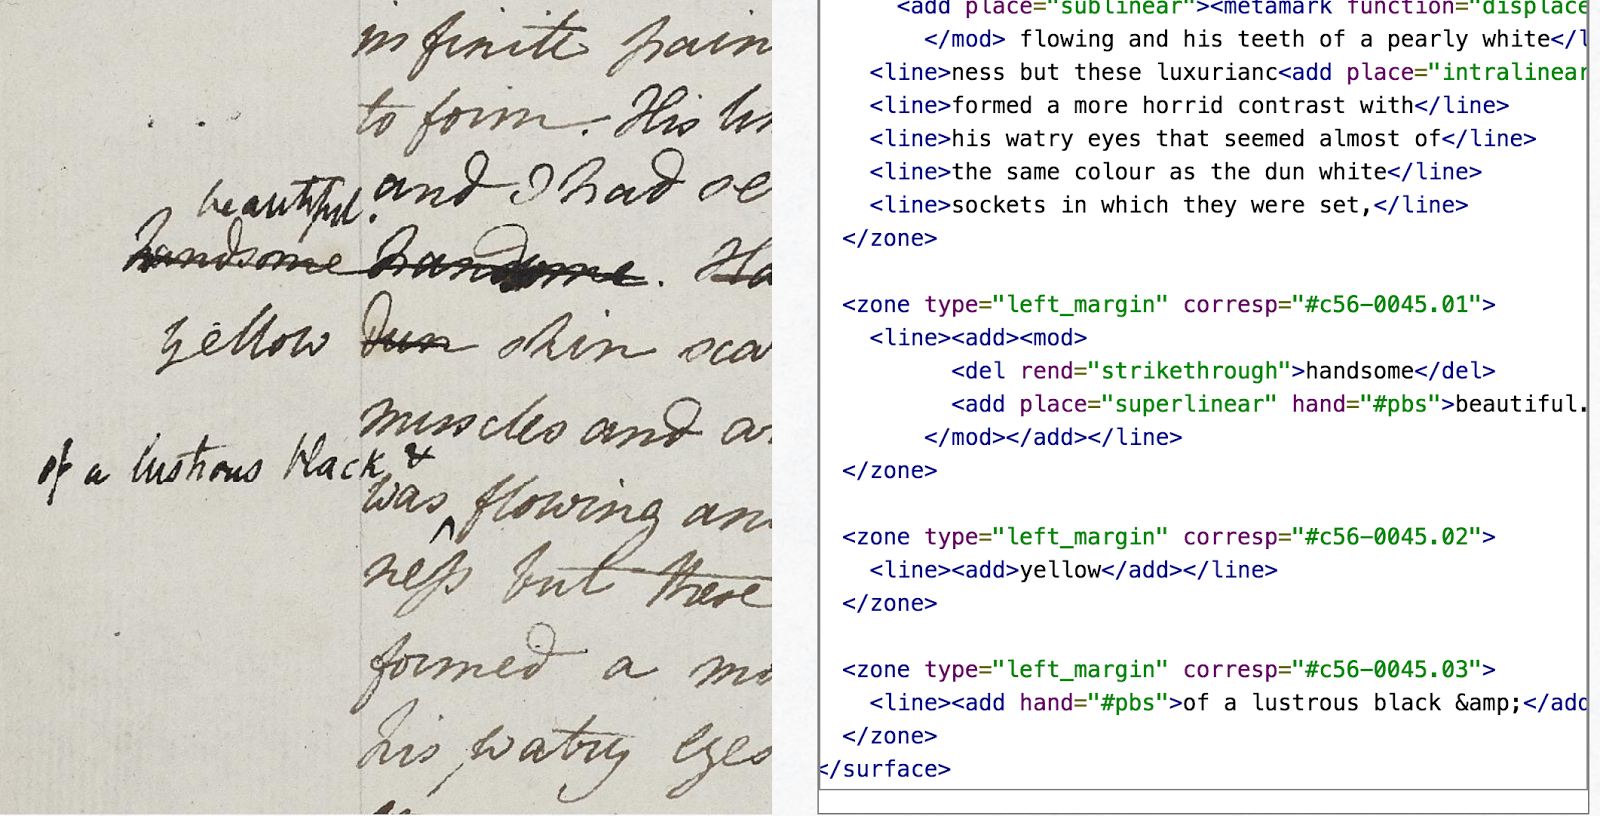 infinite pain
to form. His
and I had se
beautiful.
handsome handsome. Ha
yellow Dun skin sca
muscles and a
of a lustrous black &
was flowing an
^
ness but these
formed a mo
his watry eyes
<add place="sublinear"><metamark function="displace
</mod> flowing and his teeth of a pearly white</l
<line>ness but these luxurianc<add place="intralinear
<line>formed a more horrid contrast with</line>
<line>his watry eyes that seemed almost of</line>
<line>the same colour as the dun white</line>
<line>sockets in which they were set,</line>
</zone>
<zone type="left_margin" corresp="#c56-0045.01">
<line><add><mod>
<del rend="strikethrough">handsome</del>
<add place="superlinear" hand="#pbs">beautiful.
</mod></add></line>
</zone>
<zone type="left_margin" corresp="#c56-0045.02">
<line><add>yellow</add></line>
</zone>
<zone type="left_margin" corresp="#c56-0045.03">
<line><add hand="#pbs">of a lustrous black &amp;</add
</zone>
</surface>